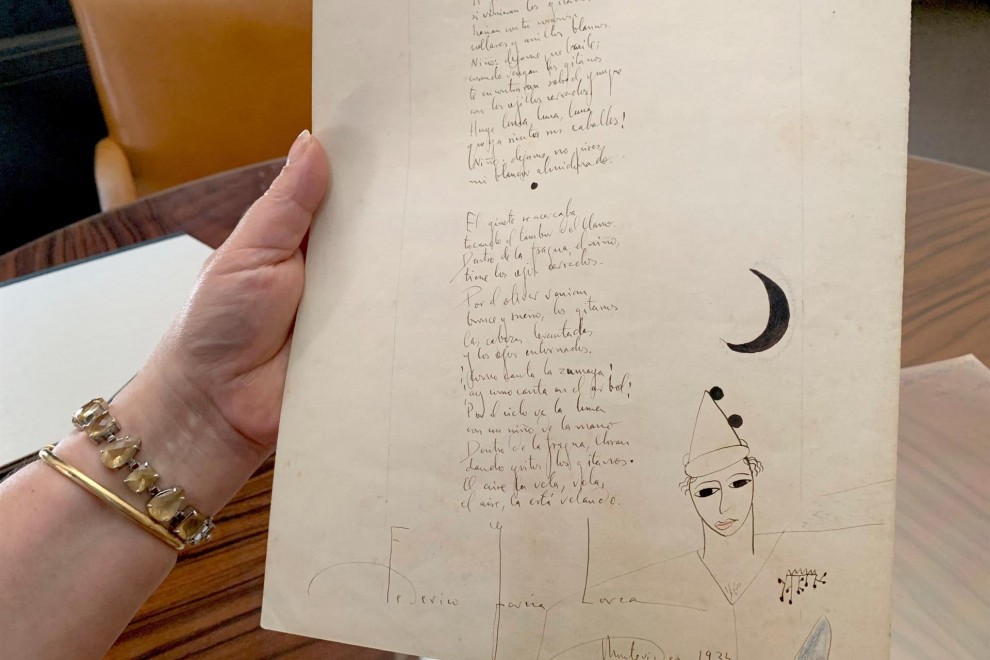 si vinieran los gitanos
harían con tu corazón
collares y anillos blancos.
Niño: déjame que baile;
cuando vengan los gitanos
te encontrarán sobre el yunque
con los ojillos cerrados.
Huye luna, luna, luna
que ya siento sus caballos!
Niño: déjame, no pises,
mi blancor almidonado.
El ginete se acercaba
tocando el tambor del llano.
Dentro de la fragua, el niño,
tiene los ojos cerrados.
Por el olivar venían
bronce y sueño, los gitanos
las cabezas levantadas
y los ojos entornados.
¡Como canta la zumaya!
¡ay como canta en el árbol!
Por el cielo va la luna
con un niño de la mano
Dentro de la fragua, lloran
dando gritos, los gitanos.
El aire la vela, vela,
el aire, la está velando.
Federico García Lorca
Montevideo 1934